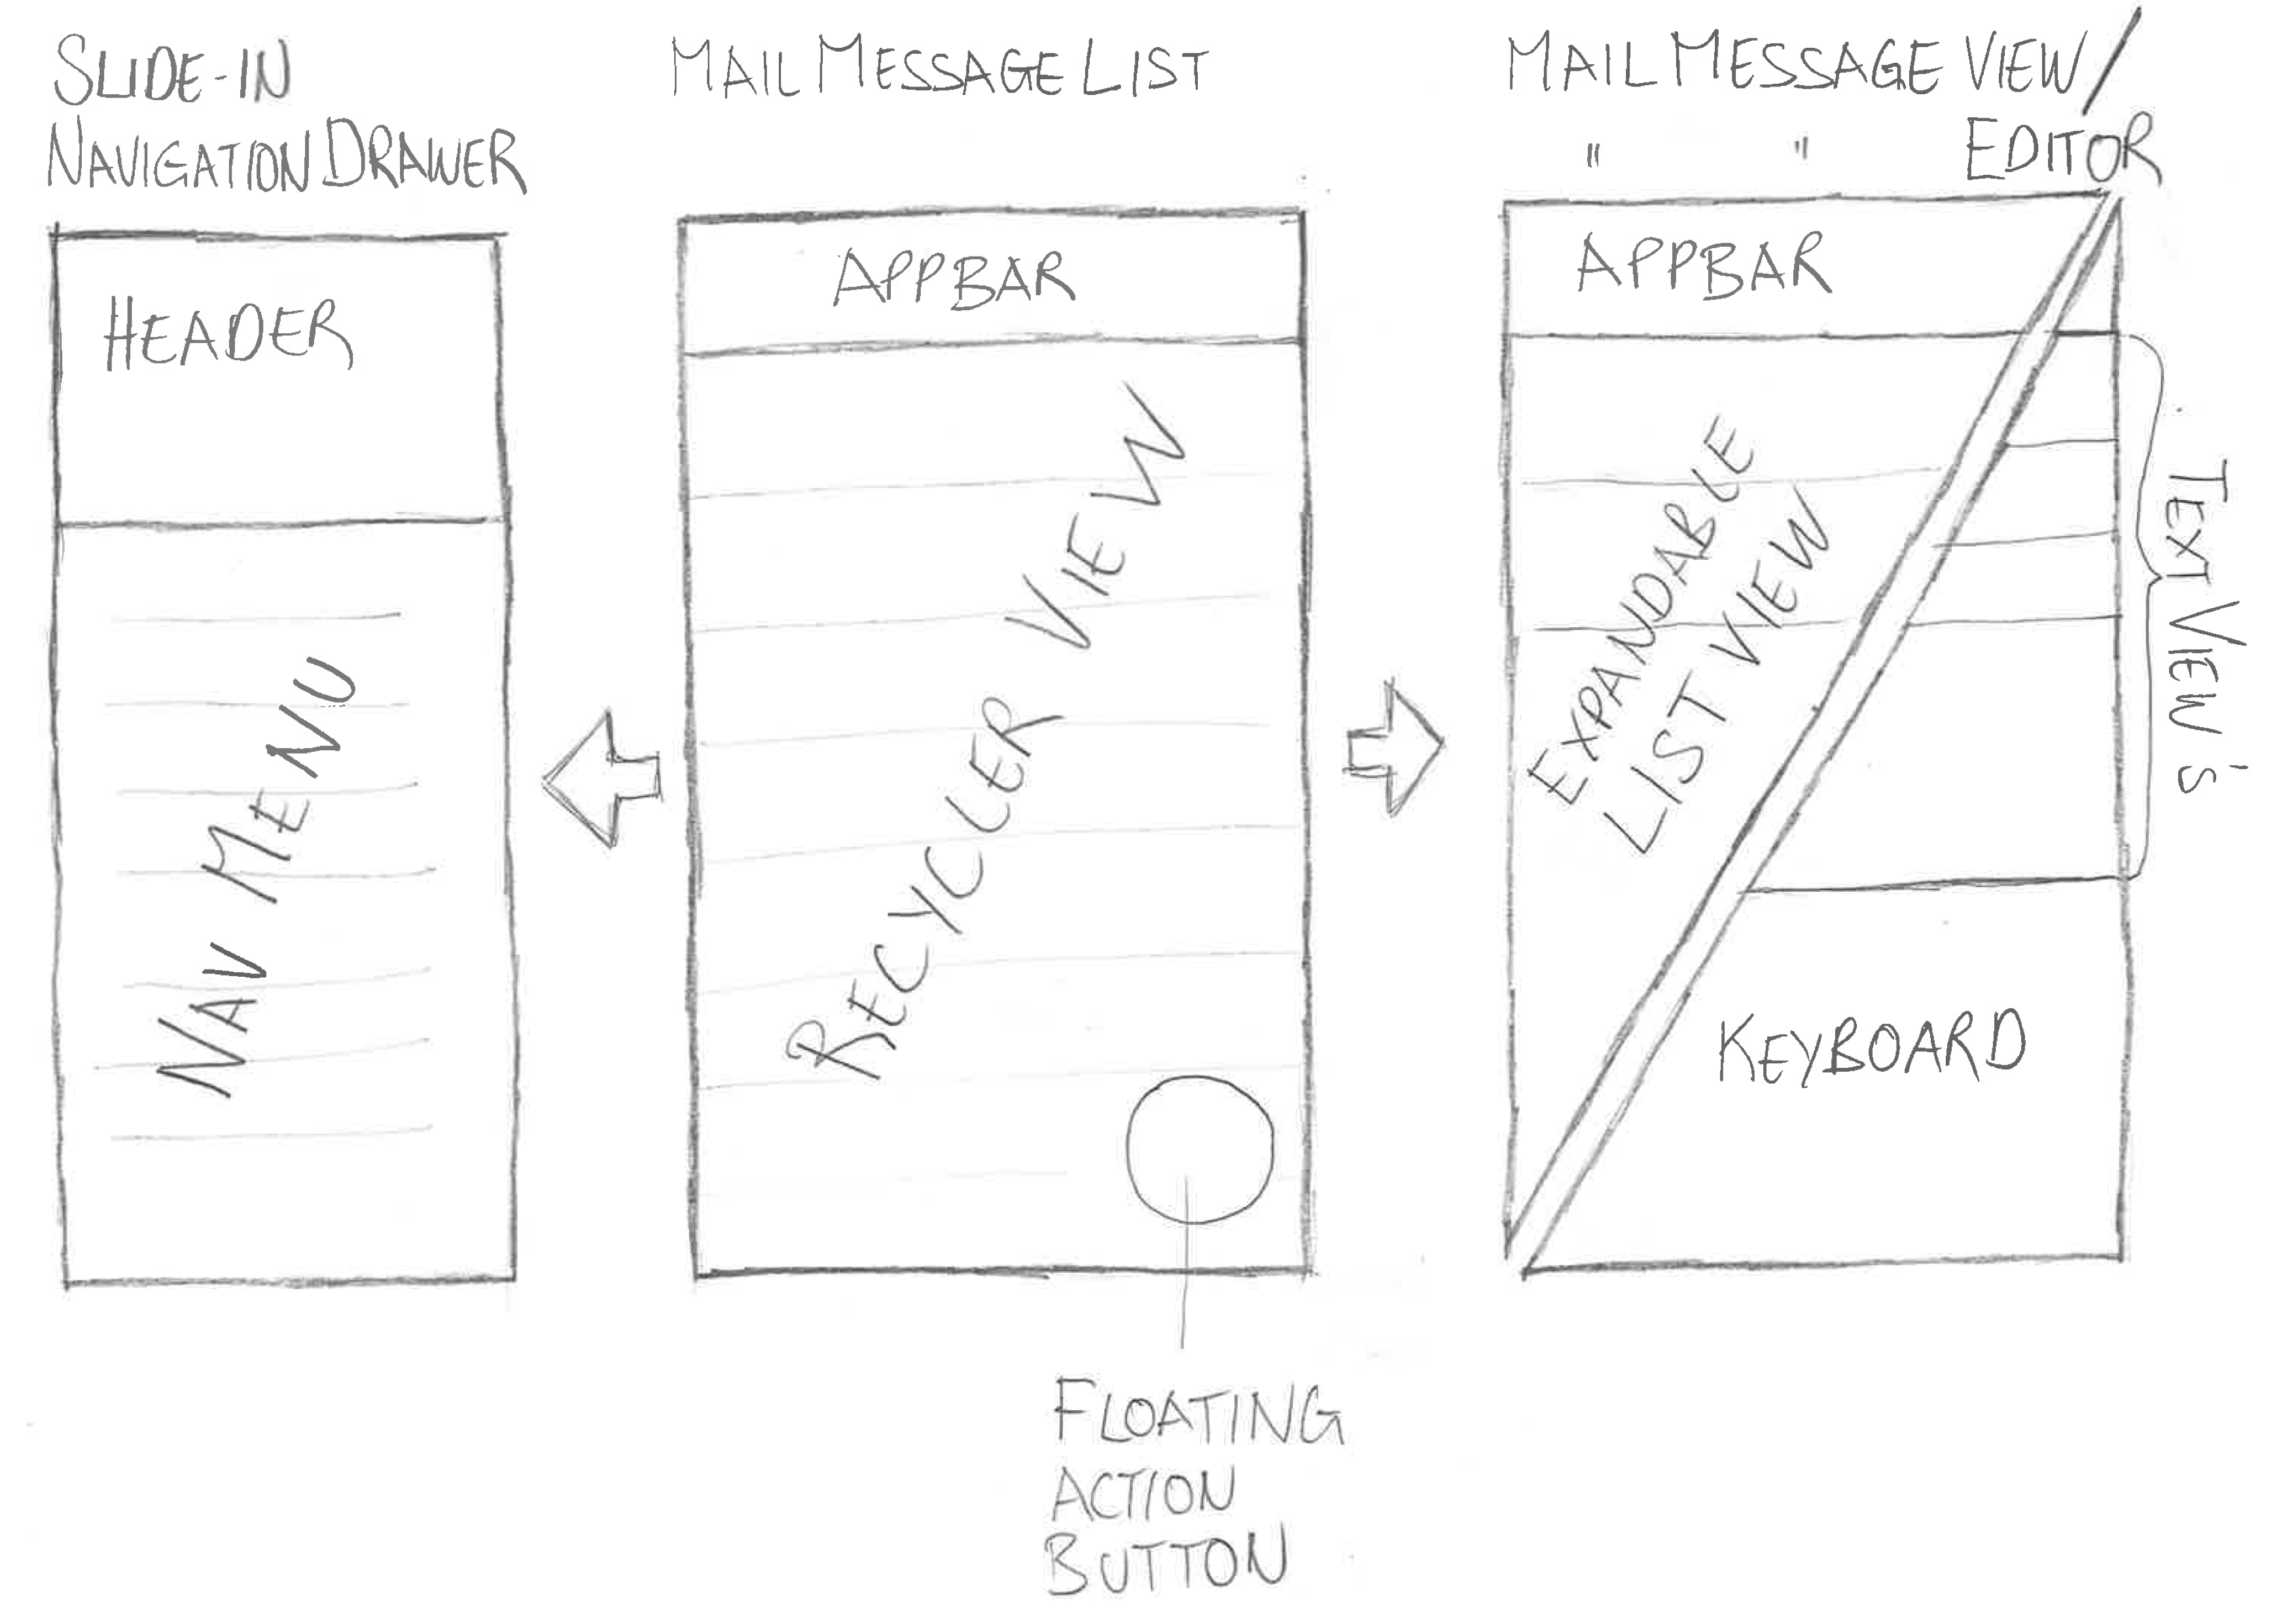 SLIDE-IN
NAVIGATION DRAWER
HEADER
NAV MENU
MAIL MESSAGE LIST
APPBAR
RECYCLER VIEW
FLOATING
ACTION
BUTTON
MAIL MESSAGE VIEW /
" " EDITOR
APPBAR
EXPANDABLE
LIST VIEW
TEXT VIEW's
KEYBOARD